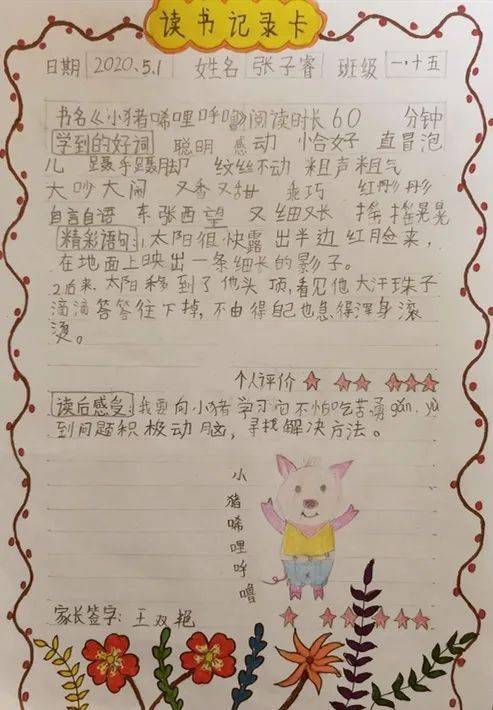 读书记录卡
日期 2020.5.1 姓名 张子睿 班级 一.十五
书名《小猪唏哩呼噜》阅读时长60 分钟
学到的好词 聪明 感动 恰好 直冒泡
儿 蹑手蹑脚 纹丝不动 粗声粗气
大吵大闹 又香又甜 乖巧 红彤彤
自言自语 东张西望 又细又长 摇摇晃晃
精彩语句:1.太阳很快露出半边红脸来,
在地面上映出一条细长的影子。
2.后来,太阳移到了他头顶,看见他大汗珠子
滴滴答答往下掉,不由得自己也急得浑身滚
烫。
个人评价 ★ ★★ ★★★
读后感受:我要向小猪学习它不怕吃苦勇gǎn,yù
到问题积极动脑,寻找解决方法。
小猪唏哩呼噜
家长签字:王双艳 ★ ★★ ★★★